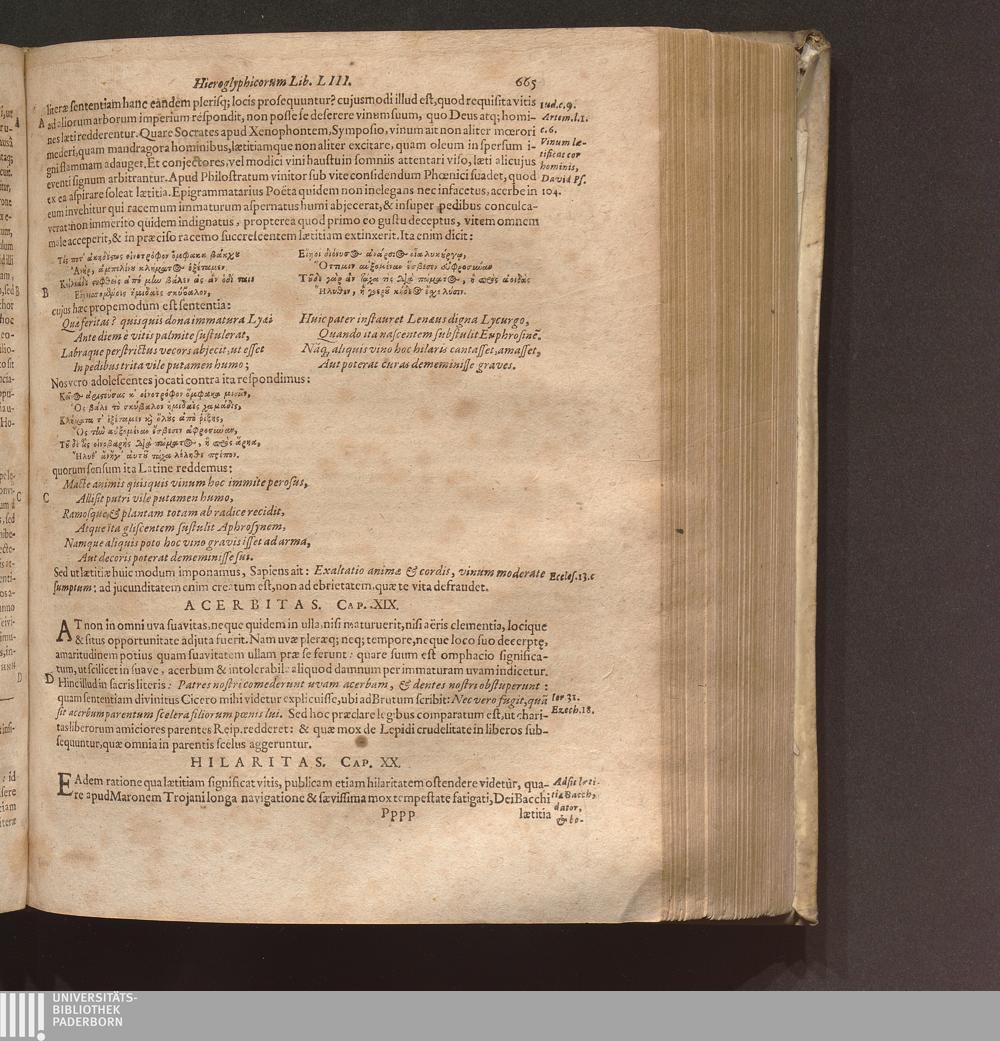 Hieroglyphicorum Lib. LIII. 665
literæ sententiam hanc eandem plerisq; locis prosequuntur? cujusmodi illud est, quod requisita vitis
ad aliorum arborum imperium respondit, non posse se deserere vinum suum, quo Deus atq; homi-
nes læti redderentur. Quare Socrates apud Xenophontem, Symposio, vinum ait non aliter mœrori
mederi, quam mandragora hominibus, lætitiamque non aliter excitare, quam oleum inspersum i-
gni flammam adauget. Et conjectores, vel modici vini haustu in somniis attentari viso, læti alicujus
eventi signum arbitrantur. Apud Philostratum vinitor sub vite considendum Phœnici suadet, quod
ex ea aspirare soleat lætitia. Epigrammatarius Poëta quidem non inelegans nec infacetus, acerbe in
eum invehitur qui racemum immaturum aspernatus humi abjecerat, & insuper pedibus conculca-
verat: non immerito quidem indignatus, propterea quod primo eo gustu deceptus, vitem omnem
male acceperit, & in præciso racemo succrescentem lætitiam extinxerit. Ita enim dicit:
A
Iud. c. 9.
Artem. l. 1.
c. 6.
Vinum læ-
tificat cor
hominis,
David Ps.
104.
B
cujus hæc propemodum est sententia:
Quæ feritas? quisquis dona immatura Lyæi
Ante diem è vitis palmite sustulerat,
Labraque perstrictus vecors abjecit, ut esset
In pedibus trita vile putamen humo;
Huic pater instauret Lenæus digna Lycurgo,
Quando ita nascentem substulit Euphrosinē.
Nãq, aliquis vino hoc hilaris cantasset, amasset,
Aut poterat curas dememinisse graves.
Nos vero adolescentes jocati contra ita respondimus:
quorum sensum ita Latine reddemus:
Macte animis quisquis vinum hoc immite perosus,
C
Allisit putri vile putamen humo,
Ramosque & plantam totam ab radice recidit,
Atque ita gliscentem sustulit Aphrosynem,
Namque aliquis poto hoc vino gravis isset ad arma,
Aut decoris poterat dememinisse sui.
Sed ut lætitiæ huic modum imponamus, Sapiens ait: Exaltatio animæ & cordis, vinum moderate
sumptum: ad jucunditatem enim creatum est, non ad ebrietatem, quæ te vita defraudet.
Eccles. 13. c
ACERBITAS. CAP. XIX.
AT non in omni uva suavitas, neque quidem in ulla, nisi maturuerit, nisi aëris clementia, locique
& situs opportunitate adjuta fuerit. Nam uvæ pleræq; neq; tempore, neque loco suo decerptę,
amaritudinem potius quam suavitatem ullam præ se ferunt: quare suum est omphacio significa-
tum, ut scilicet insuave, acerbum & intolerabile aliquod damnum per immaturam uvam indicetur.
D
Hinc illud in sacris literis: Patres nostri comederunt uvam acerbam, & dentes nostri obstuperunt:
quam sententiam divinitus Cicero mihi videtur explicuisse, ubi ad Brutum scribit: Nec vero fugit, quã
sit acerbum parentum scelera filiorum pœnis lui. Sed hoc præclare legibus comparatum est, ut chari-
tas liberorum amiciores parentes Reip. redderet: & quæ mox de Lepidi crudelitate in liberos sub-
sequuntur, quæ omnia in parentis scelus aggeruntur.
Ier 31.
Ezech. 18.
HILARITAS. CAP. XX.
EAdem ratione qua lætitiam significat vitis, publicam etiam hilaritatem ostendere videtur, qua-
re apud Maronem Trojani longa navigatione & sævissima mox tempestate fatigati, Dei Bacchi
Adsit læti-
tiæ Bacch,
dator,
& bo-
Pppp lætitia
UNIVERSITÄTS-
BIBLIOTHEK
PADERBORN